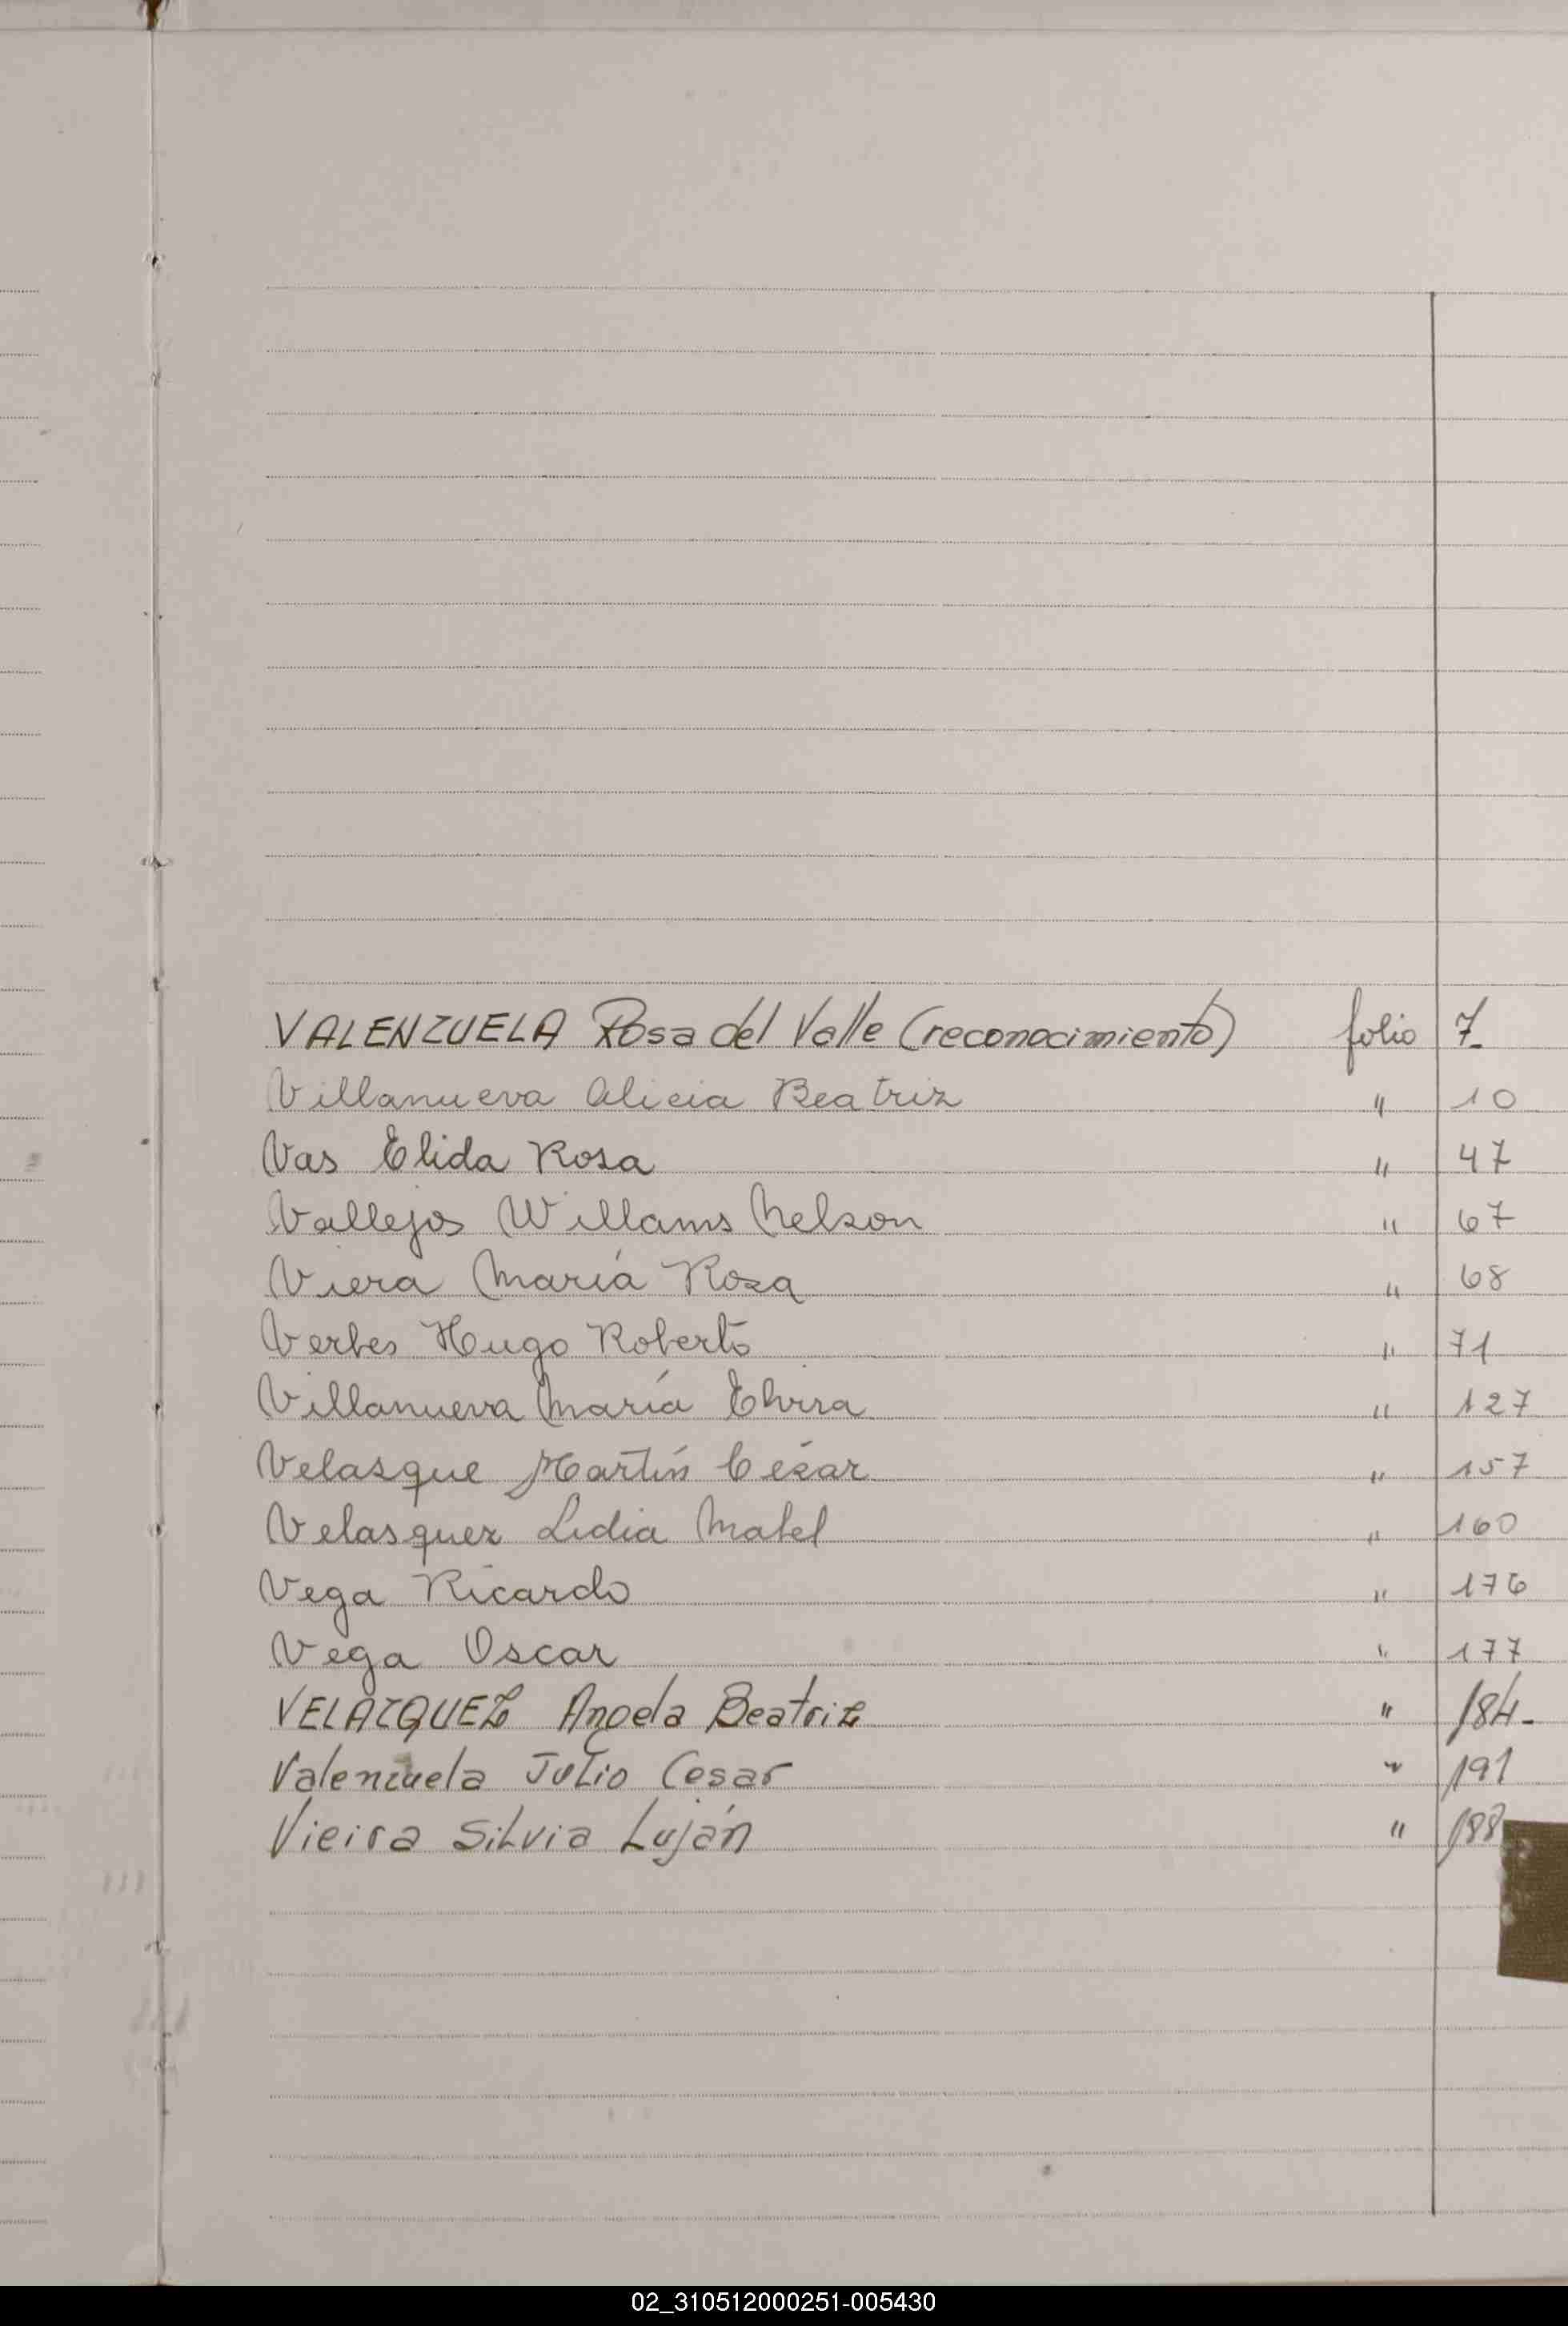 VALENZUELA Rosa del Valle (reconocimiento) folio 7
Villanueva Alicia Beatriz " 10
Vas Elida Rosa " 47
Vallejos Willams Nelson " 67
Viera María Rosa " 68
Verbes Hugo Roberto " 71
Villanueva María Elvira " 127
Velasque Martín César " 157
Velasquez Lidia Mabel " 160
Vega Ricardo " 176
Vega Oscar " 177
VELAZQUEZ Angela Beatriz " 184-
Valenzuela Julio Cesar " 191
Vieira Silvia Luján " 188
02_310512000251-005430